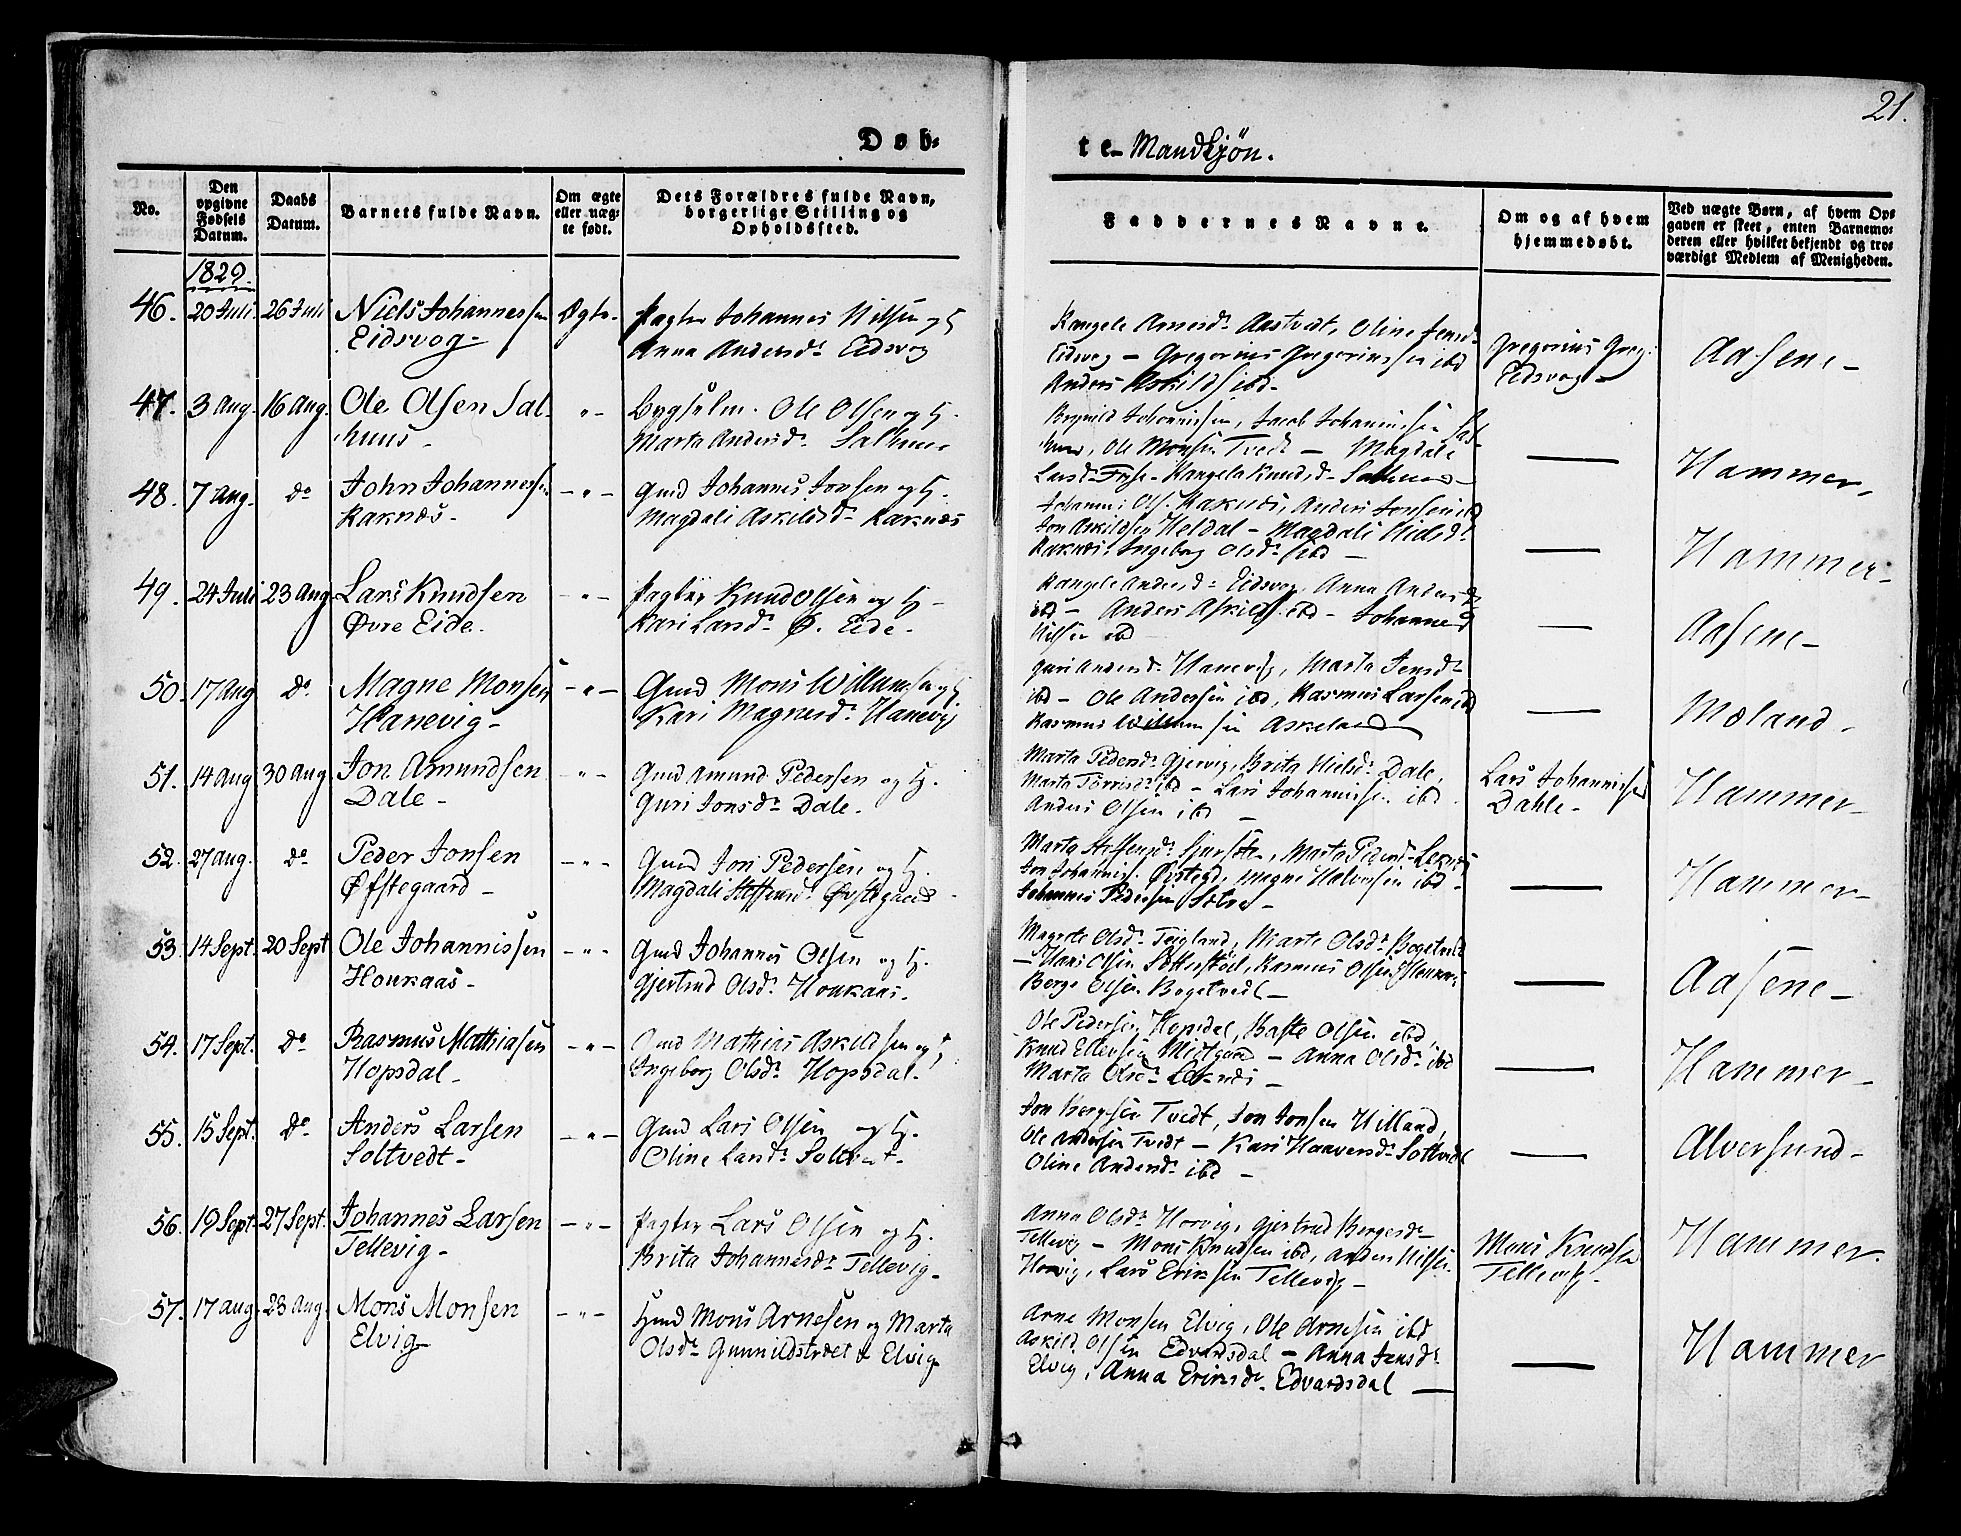 21.
Døb-
te- Mandkjøn.
No.
Den opgivne Fødsels Datum.
Daabs Datum.
Barnets fulde Navn.
Om ægte eller uægte født.
Dets Forældres fulde Navn, borgerlige Stilling og Opholdssted.
Faddernes Navne.
Om og af hvem hjemmedøbt.
Ved uægte Børn, af hvem Opgaven er skeet, enten Barnemoderen eller hvilket bekjendt og troværdigt Medlem af Menigheden.
1829.
46. 20 Juli. 26 Juli Niels Johannessen Ægte. Pagter Johannes Nilsen og H
Eidsvog- Anna Andersdr. Eidsvog
Rangele Arnesdr. Aastvedt, Oline Jensdr.
Eidsvog - Gregorius Gregoriussen ibd
Anders Askilds ibd-
Gregorius Greg:
Eidsvog -
Aasene-
47. 3 Aug. 16 Aug. Ole Olsen Sal- " Bygselm. Ole Olsen og H.
huus - Marta Andersdr. Salhuus
Johannissen, Jacob Johannissen Sal-
huus, Ole Monsen Tvedt - Magdali
Larsdr. Frise- Rangela Knudsd- Salhuus -
Hammer.
48. 7 Aug. do John Johannessen - " - Gmd Johannes Jonsen og H.
Raknæs- Magdali Askildsdr. Raknæs
Johannis Ols. Raknæs, Anders Jonsen ibd
Jon Askildsen Heldal - Magdali Nielsdr.
Raknæs, Ingeborg Olsdr. ibd -
Hammer-
49. 24 Juli 23 Aug. Lars Knudsen - " - Pagter Knud Olsen og H -
Øvre Eide. Kari Larsdr. Ø. Eide.
Rangele Andersdr. Eidsvog, Anna Andersdr
ibd - Anders Askilds. ibd - Johannes
Nilsen ibd
Aasene-
50. 17 Aug do. Magne Monsen - " - Gmd Mons Willumsen og H
Hanevig- Kari Magnesdr. Hanevig
Guri Andersdr. Hanevig, Marta Jensdr.
ibd - Ole Andersen ibd, Rasmus Larsen ibd
Rasmus Willumsen Askeland
Mæland.
51. 14 Aug 30 Aug. Jon Amundsen - " - Gmd Amund Pedersen og H.
Dale- Guri Jonsdr. Dale.
Marta Pedersdr. Gjervig, Brita Nielsdr. Dale,
Marta Tørrisdr. ibd - Lars Johannissen ibd
Anders Olsen ibd -
Lars Johannissen
Dahle-
Hammer-
52. 27 Aug. do Peder Jonsen - " - Gmd Jon Pedersen og H.
Øfstegaard - Magdali Steffensdr. Øvstegaard -
Marta Steffensdr. , Marta Pedersd- Leknæs
Jon Johannis. Øvstegd, Magne Halvorsen ibd -
Johannes Pedersen Sætre-
Hammer-
53. 14 Sept. 20 Sept Ole Johannissen - " - Gmd Johannes Olsen og H.
Houkaas- Gjertrud Olsdr. Houkaas.
Magrete Olsdr. Teigland, Marte Olsdr. Bogetvedt
- Hans Olsen , Rasmus Olsen
Berge Olsen Bogetvedt -
Aasene-
54. 17 Sept. do Rasmus Mathiasen - " - Gmd Mathias Askildsen og H
Hopsdal- Ingeborg Olsdr. Hopsdal.
Ole Pedersen Hopsdal, Baste Olsen ibd,
Knud Ellevsen Midtgaard - Anna Olsdr. ibd
Marta Olsdr. Leknæs -
Hammer-
55. 15 Sept. do. Anders Larsen - " - Gmd Lars Olsen og H.
Soltvedt- Oline Larsdr. Soltvedt.
Jon Bergesen Tvedt, Jon Jonsen Hilland,
Ole Andersen Tvedt - Kari Haaversdr. Soltvedt
Oline Andersdr. ibd -
Alversund-
56. 19 Sept. 27 Sept. Johannes Larsen - " - Pagter Lars Olsen og H.
Tellevig- Brita Johannesdr. Tellevig-
Anna Olsdr. Horvig, Gjertrud Bergesdr-
Tellevig - Mons Knudsen ibd, Anders Nilsen
Horvig, Lars Eriksen Tellevig -
Mons Knudsen
Tellevig-
Hammer.
57. 17 Aug. 23 Aug. Mons Monsen - " - Gmd Mons Arnesen og Marta
Elvig- Olsdr. Gunnildstrædet & Elvig-
Arne Monsen Elvig, Ole Arnesen ibd
Askild Olsen Edvardsdal - Anna Jensdr.
Elvig, Anna Eriksdr. Edvardsdal -
Hammer